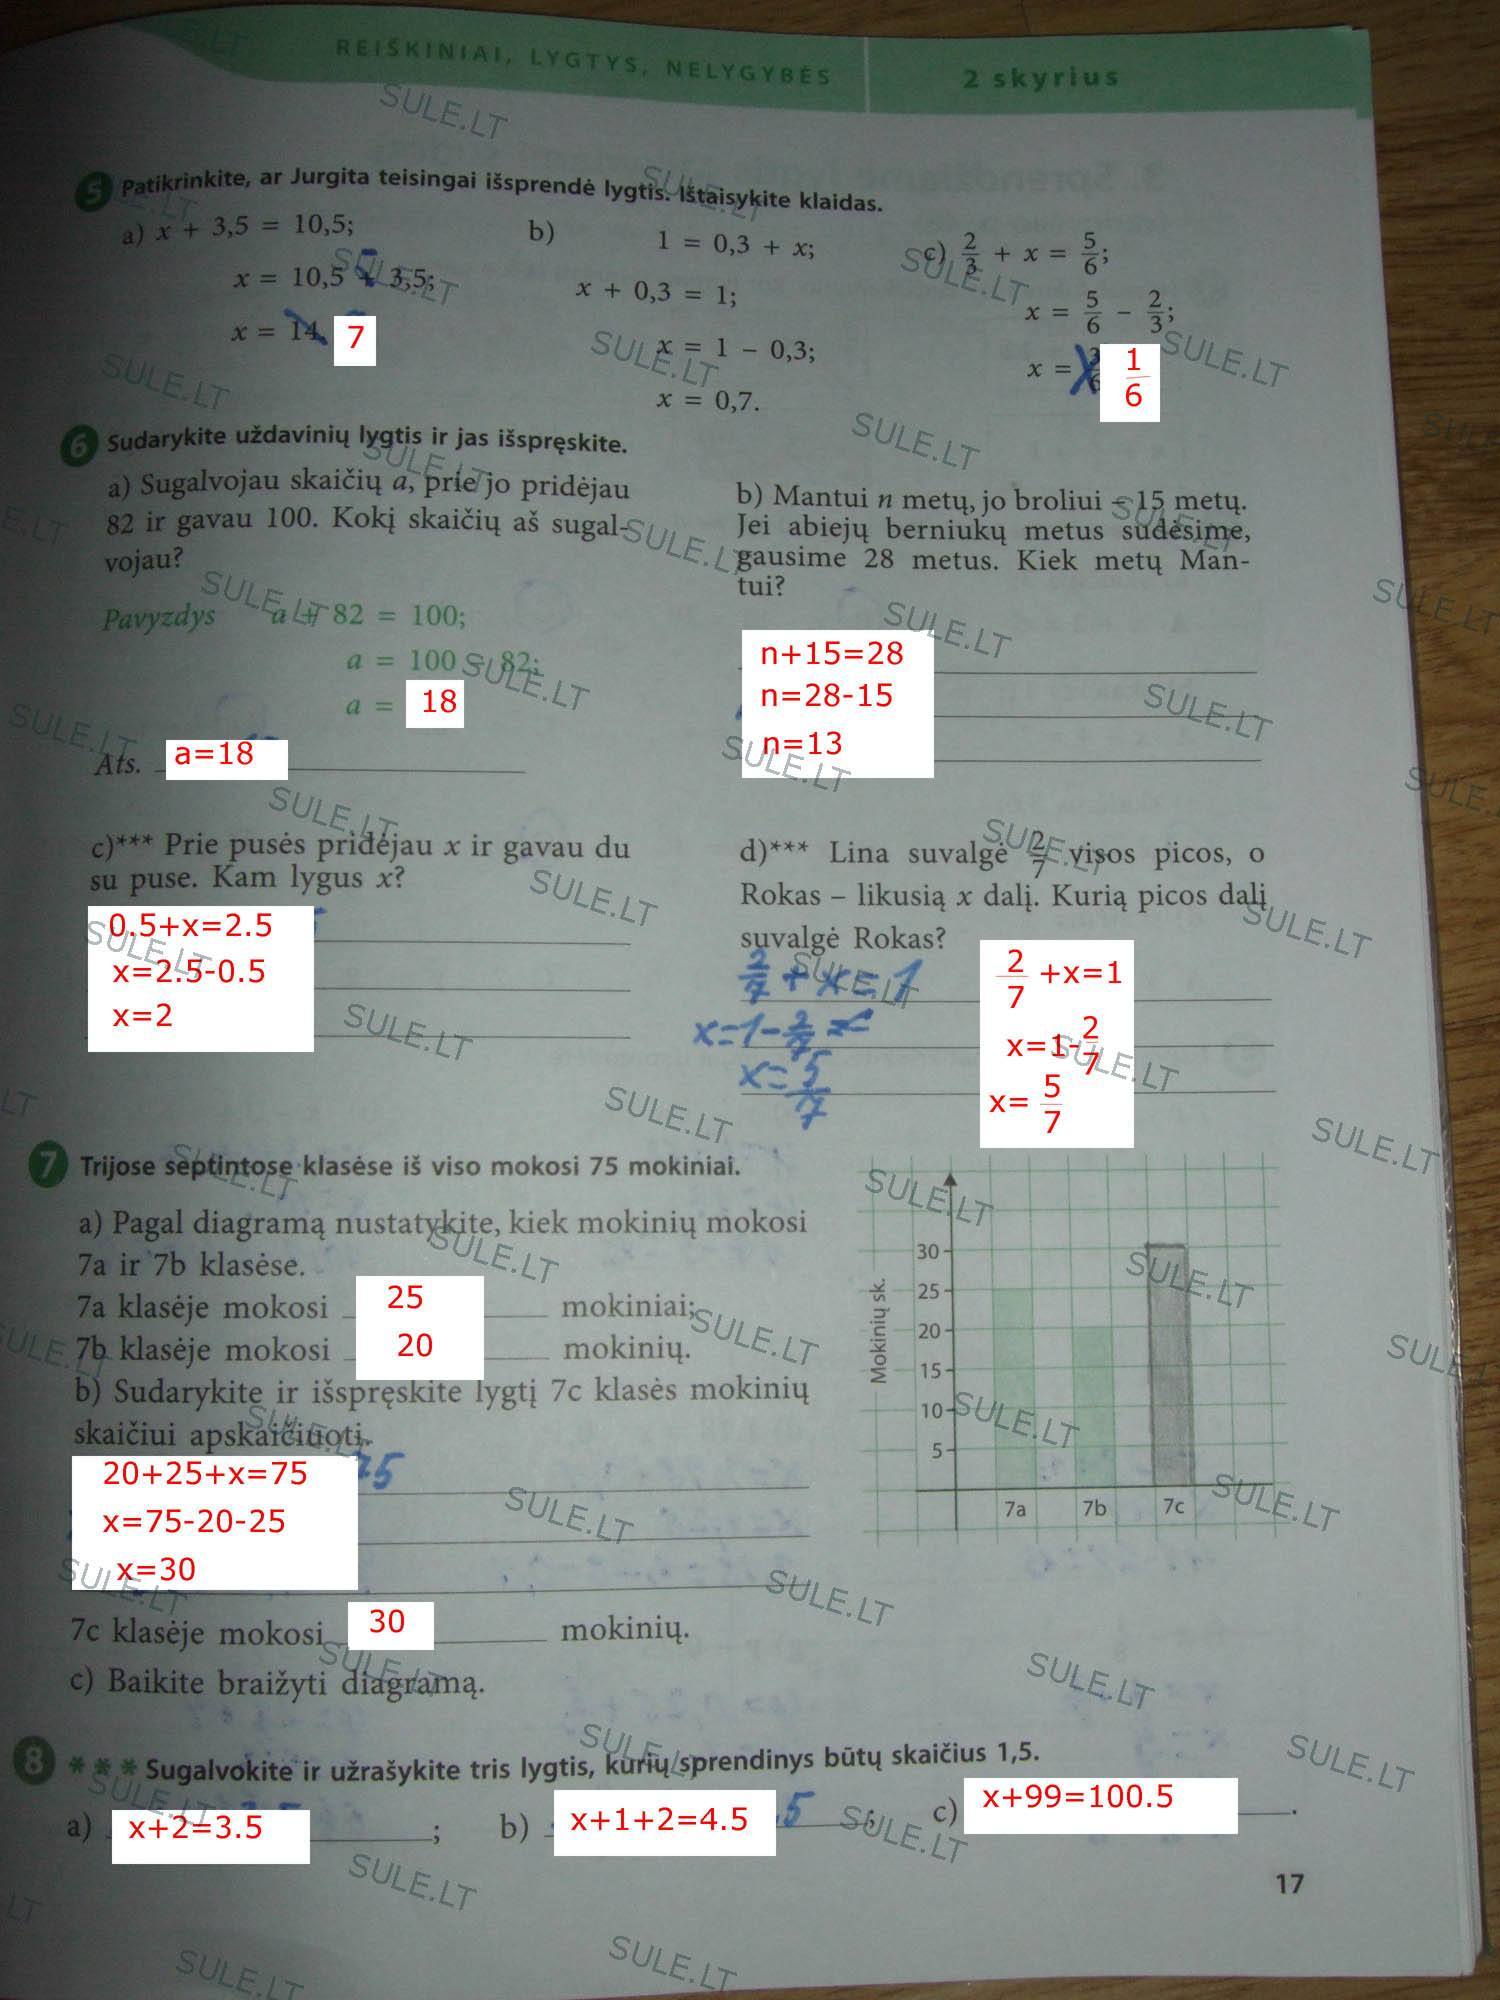 REIŠKINIAI, LYGTYS, NELYGYBĖS
2 skyrius
5 Patikrinkite, ar Jurgita teisingai išsprendė lygtis. Ištaisykite klaidas.
a) x + 3,5 = 10,5;
x = 10,5 + 3,5;
x = 14. 7
b) 1 = 0,3 + x;
x + 0,3 = 1;
x = 1 – 0,3;
x = 0,7.
c) 2/3 + x = 5/6;
x = 5/6 – 2/3;
x = 1/6
6 Sudarykite uždavinių lygtis ir jas išspręskite.
a) Sugalvojau skaičių a, prie jo pridėjau
82 ir gavau 100. Kokį skaičių aš sugal-
vojau?
Pavyzdys a + 82 = 100;
a = 100 – 82;
a = 18
Ats. a=18
b) Mantui n metų, jo broliui – 15 metų.
Jei abiejų berniukų metus sudėsime,
gausime 28 metus. Kiek metų Man-
tui?
n+15=28
n=28-15
n=13
c)*** Prie pusės pridėjau x ir gavau du
su puse. Kam lygus x?
0.5+x=2.5
x=2.5-0.5
x=2
d)*** Lina suvalgė 2/7 visos picos, o
Rokas – likusią x dalį. Kurią picos dalį
suvalgė Rokas?
2/7 + x = 1
x=1-2/7
x=5/7
2/7 +x=1
x=1-2/7
x= 5/7
7 Trijose septintose klasėse iš viso mokosi 75 mokiniai.
a) Pagal diagramą nustatykite, kiek mokinių mokosi
7a ir 7b klasėse.
7a klasėje mokosi 25 mokiniai;
7b klasėje mokosi 20 mokinių.
b) Sudarykite ir išspręskite lygtį 7c klasės mokinių
skaičiui apskaičiuoti.
20+25+x=75
x=75-20-25
x=30
7c klasėje mokosi 30 mokinių.
c) Baikite braižyti diagramą.
Mokinių sk.
30
25
20
15
10
5
7a 7b 7c
8 *** Sugalvokite ir užrašykite tris lygtis, kurių sprendinys būtų skaičius 1,5.
a) x+2=3.5 ; b) x+1+2=4.5 ; c) x+99=100.5 .
17
SULE.LT